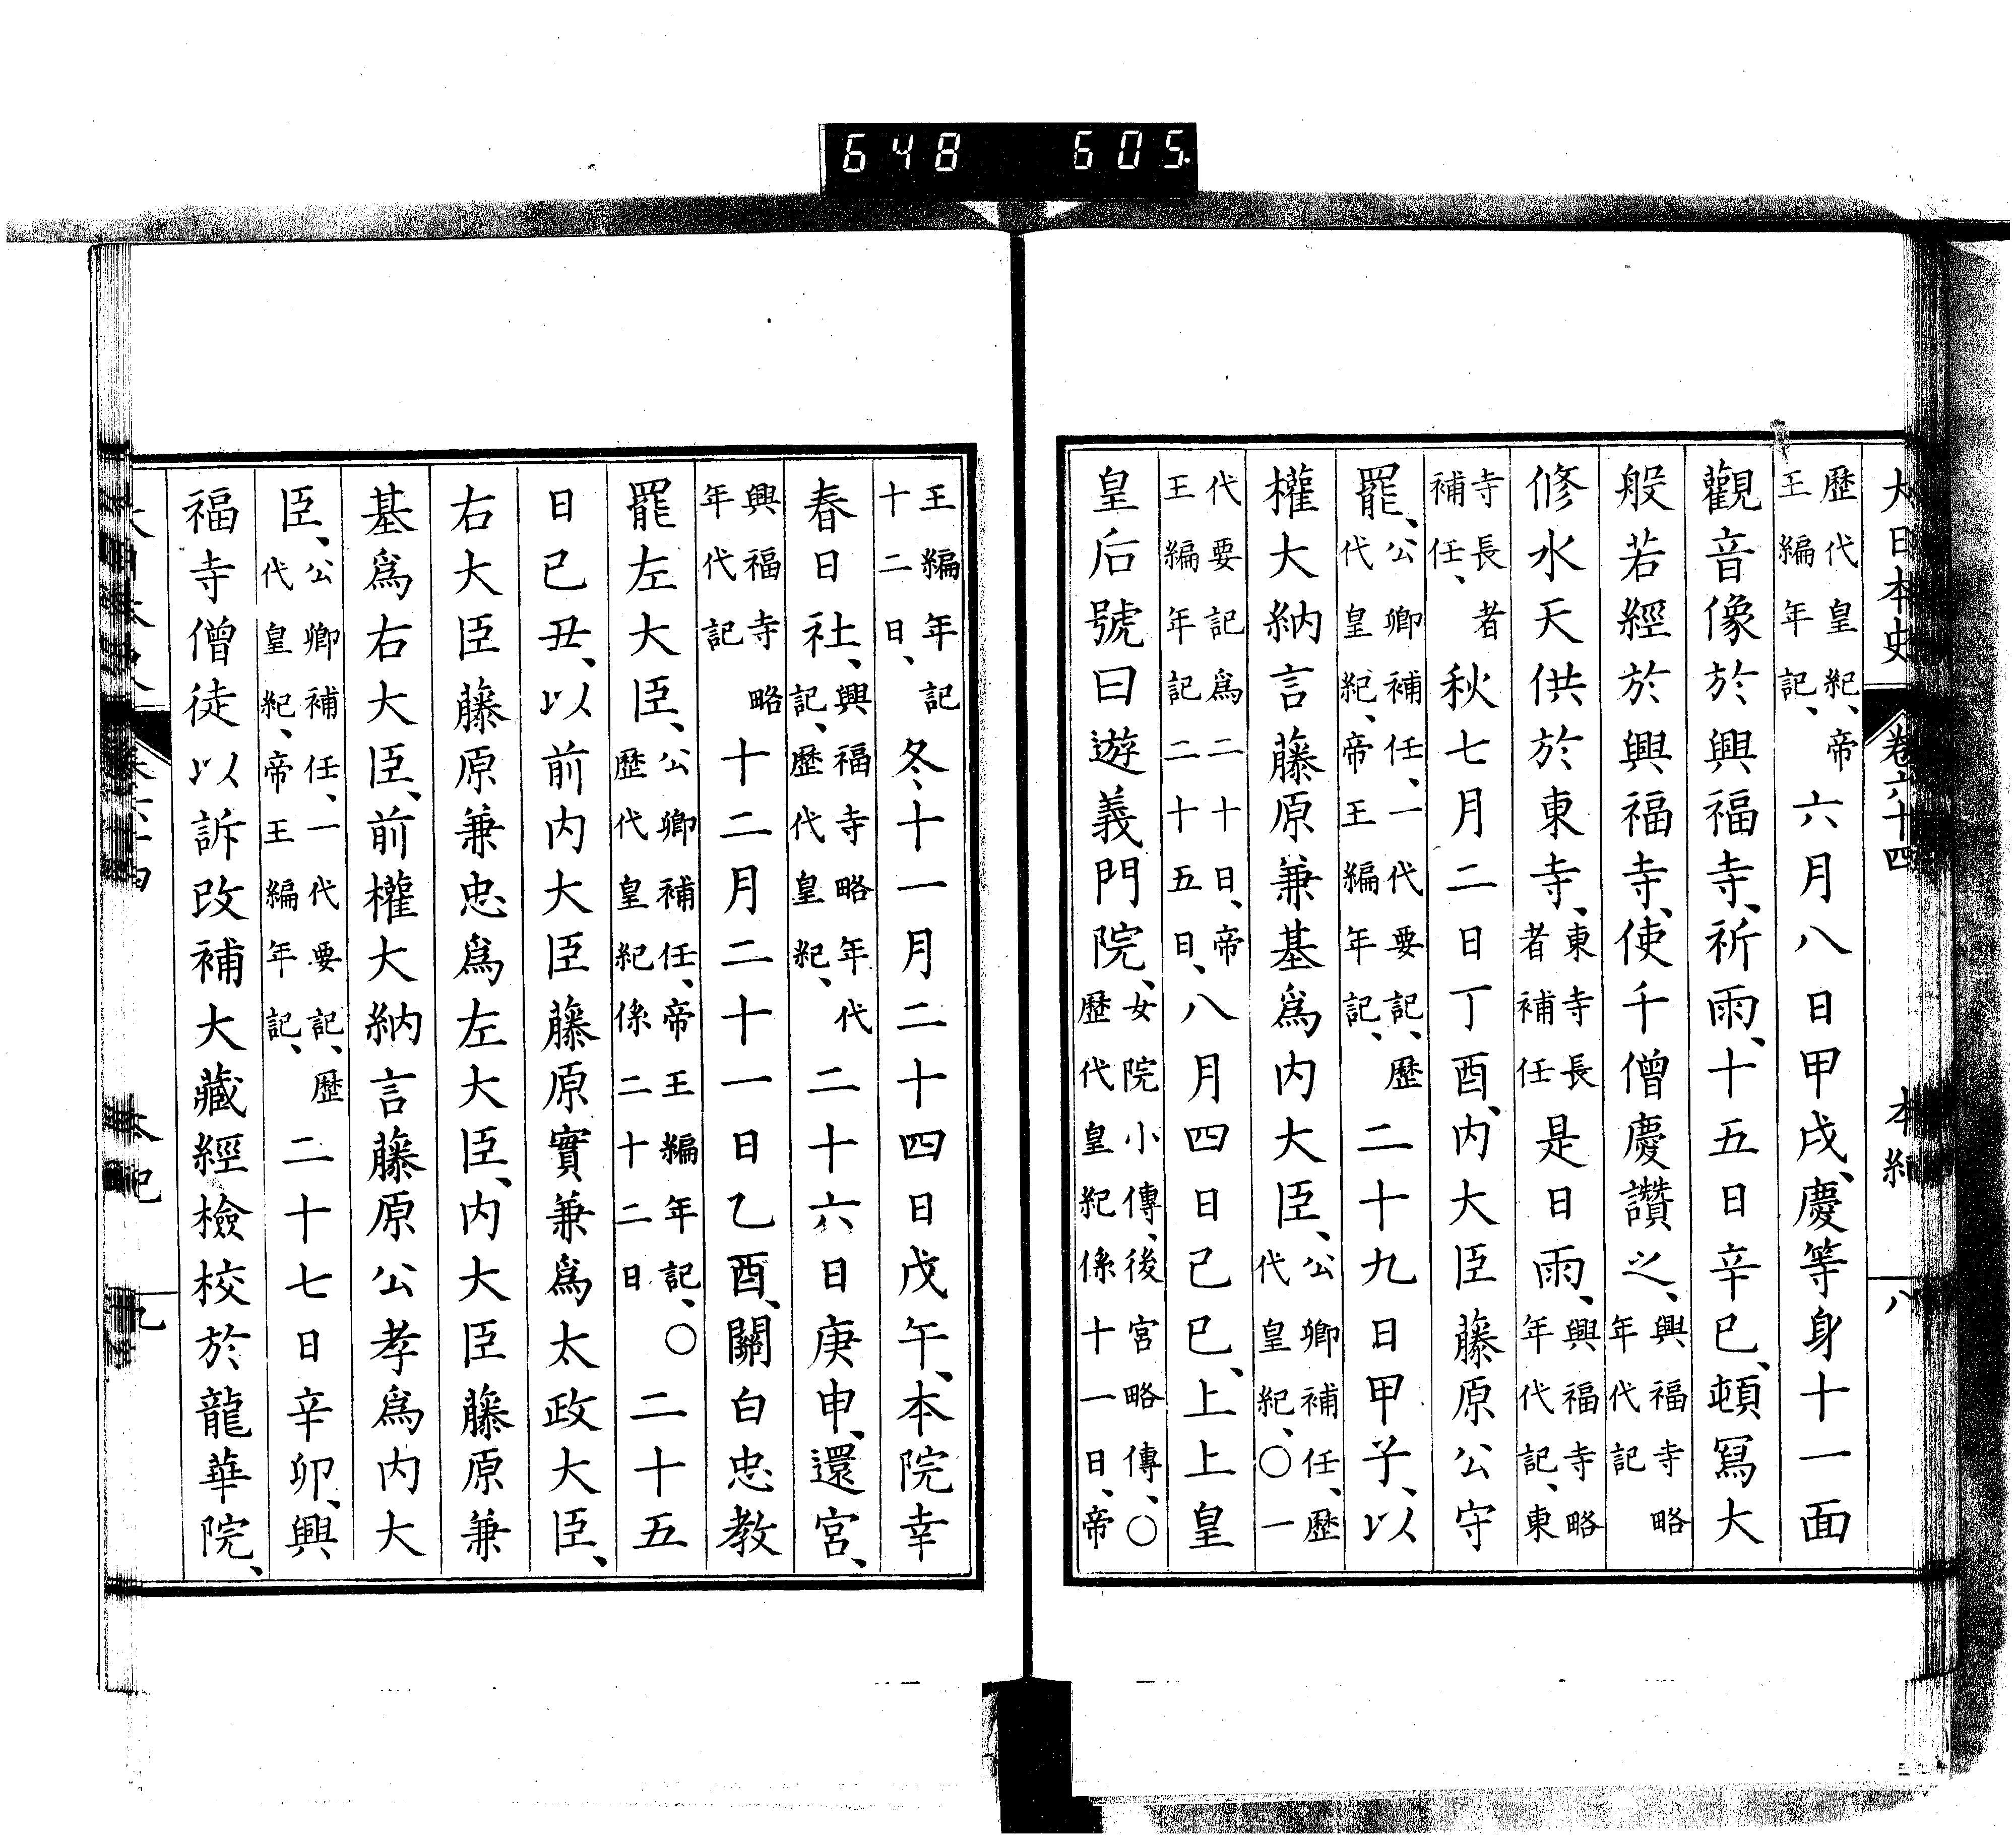 648 605.
大日本史 卷六十四 本紀 八
歷代皇紀、帝王編年記、六月八日甲戌、慶等身十一面
觀音像於興福寺、祈雨、十五日辛巳、頓寫大
般若經於興福寺、使千僧慶讚之、興福寺略年代記
修水天供於東寺、東寺長者補任是日雨、興福寺略年代記、東
寺長者補任、秋七月二日丁酉、內大臣藤原公守
罷、公卿補任、一代要記、歷代皇紀、帝王編年記、二十九日甲子、以
權大納言藤原兼基爲內大臣、公卿補任、歷代皇紀、〇一
代要記爲二十日、帝王編年記二十五日、八月四日己巳、上上皇
皇后號曰遊義門院、女院小傳、後宮略傳、〇歷代皇紀係十一日、帝
王編年記十二日、冬十一月二十四日戊午、本院幸
春日社、興福寺略年代記、歷代皇紀、二十六日庚申、還宮、
興福寺略年代記十二月二十一日乙酉、關白忠教
罷左大臣、公卿補任、帝王編年記、〇歷代皇紀係二十二日二十五
日己丑、以前內大臣藤原實兼爲太政大臣、
右大臣藤原兼忠爲左大臣、內大臣藤原兼
基爲右大臣、前權大納言藤原公孝爲內大
臣、公卿補任、一代要記、歷代皇紀、帝王編年記、二十七日辛卯、興
福寺僧徒以訴改補大藏經檢校於龍華院、